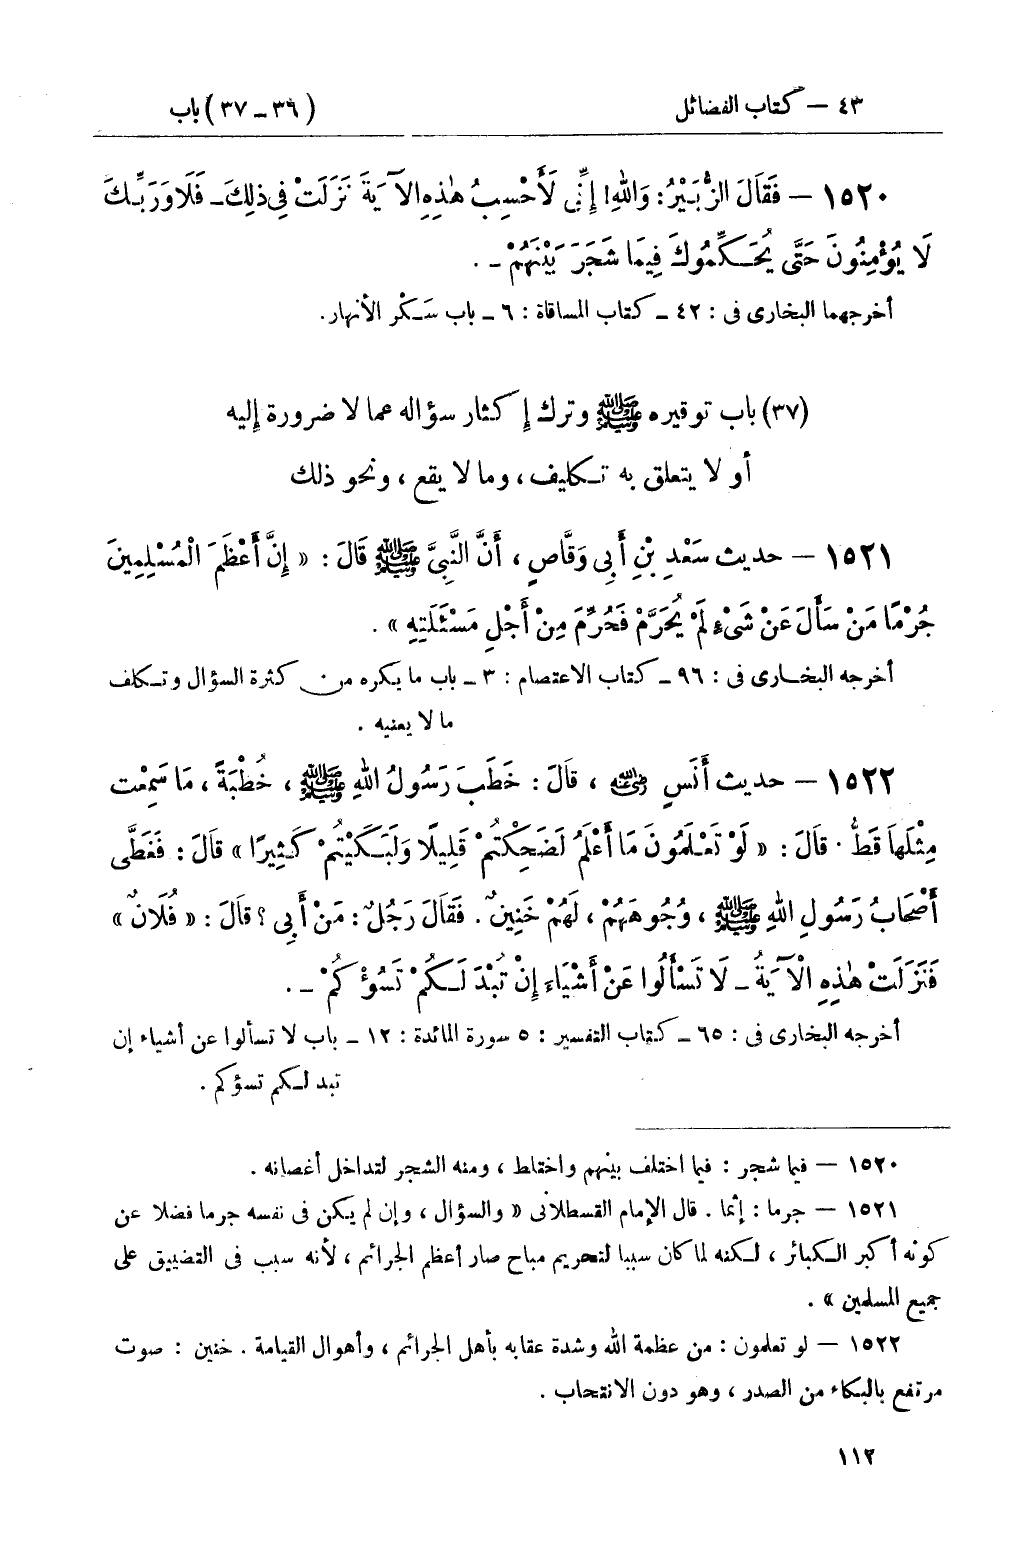 ٤٣ — كتاب الفضائل (٣٦ ــ ٣٧) باب
١٥٢٠ — فَقَالَ الزُّبَيْرُ: وَاللهِ! إِنِّي لَأَحْسِبُ هٰذِهِ الآيَةَ نَزَلَتْ فِي ذٰلِكَ ــ فَلَا وَرَبِّكَ
لَا يُؤْمِنُونَ حَتَّى يُحَكِّمُوكَ فِيمَا شَجَرَ بَيْنَهُمْ ــ .
أخرجهما البخارى فى : ٤٢ ــ كتاب المساقاة : ٦ ــ باب سَكْر الأنهار.
(٣٧) باب توقيره ﷺ وترك إكثار سؤاله عما لا ضرورة إليه
أو لا يتعلق به تكليف ، وما لا يقع ، ونحو ذلك
١٥٢١ — حديث سَعْدِ بْنِ أَبِي وَقَّاصٍ ، أَنَّ النَّبِيَّ ﷺ قَالَ : « إِنَّ أَعْظَمَ الْمُسْلِمِينَ
جُرْمًا مَنْ سَأَلَ عَنْ شَىْءٍ لَمْ يُحَرَّمْ فَحُرِّمَ مِنْ أَجْلِ مَسْئَلَتِهِ » .
أخرجه البخارى فى : ٩٦ ــ كتاب الاعتصام : ٣ ــ باب ما يكره من كثرة السؤال وتكلف
ما لا يعنيه .
١٥٢٢ — حديث أَنَسٍ رضي الله عنه ، قَالَ : خَطَبَ رَسُولُ اللهِ ﷺ ، خُطْبَةً ، مَا سَمِعْت
مِثْلَهَا قَطُّ . قَالَ : « لَوْ تَعْلَمُونَ مَا أَعْلَمُ لَضَحِكْتُمْ قَلِيلًا وَلَبَكَيْتُمْ كَثِيرًا » قَالَ : فَغَطَّى
أَصْحَابُ رَسُولِ اللهِ ﷺ ، وُجُوهَهُمْ ، لَهُمْ خَنِينٌ . فَقَالَ رَجُلٌ : مَنْ أَبِي ؟ قَالَ : « فُلَانٌ »
فَنَزَلَتْ هٰذِهِ الْآيَةُ ــ لَا تَسْأَلُوا عَنْ أَشْيَاءَ إِنْ تُبْدَ لَكُمْ تَسُؤْكُمْ ــ .
أخرجه البخارى فى : ٦٥ ــ كتاب التفسير : ٥ سورة المائدة : ١٢ ــ باب لا تسألوا عن أشياء إن
تبد لكم تسؤكم .
١٥٢٠ — فيما شجر : فيما اختلف بينهم واختلط ، ومنه الشجر لتداخل أغصانه .
١٥٢١ — جرما : إثما . قال الإمام القسطلانى « والسؤال ، وإن لم يكن فى نفسه جرما فضلا عن
كونه أكبر الكبائر ، لكنه لما كان سببا لتحريم مباح صار أعظم الجرائم ، لأنه سبب فى التضييق على
جميع المسلمين » .
١٥٢٢ — لو تعلمون : من عظمة الله وشدة عقابه بأهل الجرائم ، وأهوال القيامة . خنين : صوت
مرتفع بالبكاء من الصدر ، وهو دون الانتحاب .
١١٢